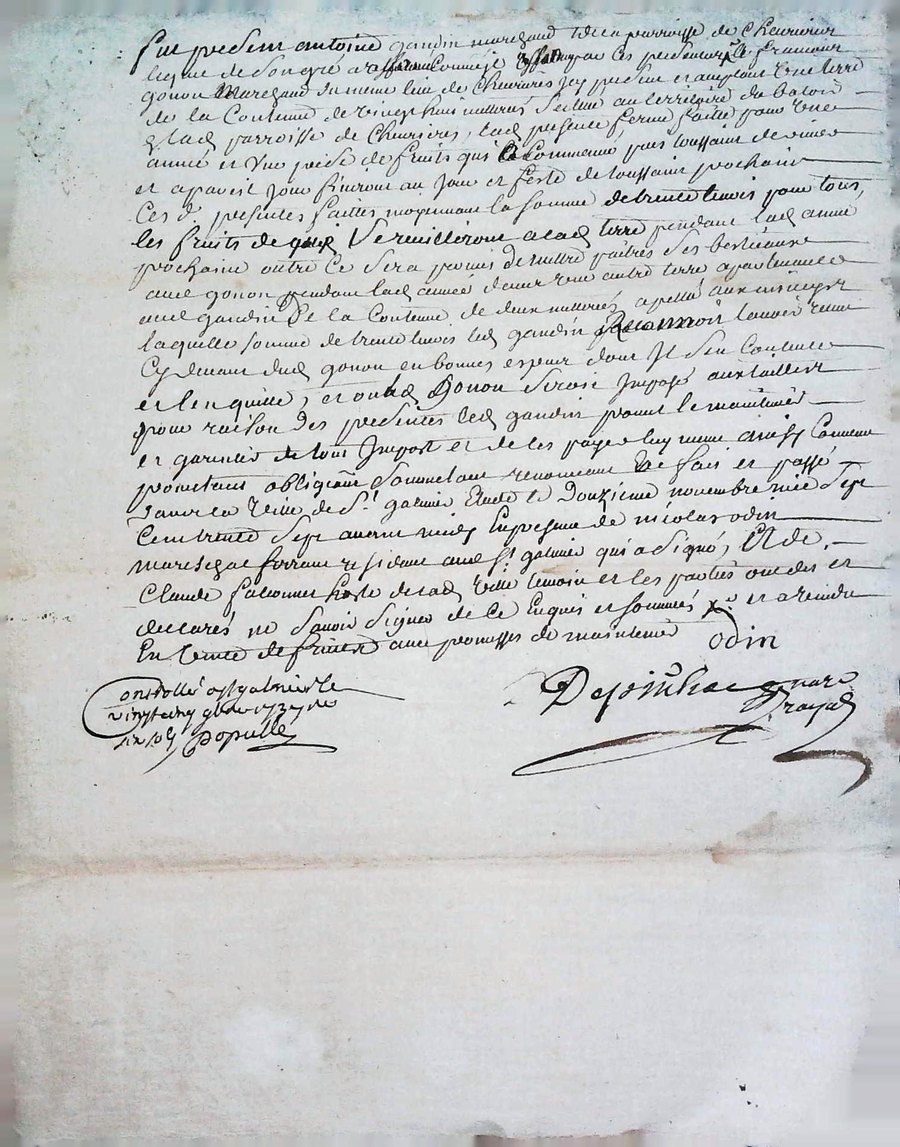 fut present antoine gandin marchand de la parroisse de Chevrieres
lequel de son gré a affermé par ces presentes a francois
gonon Marchand du meme lieu de Chevrieres jcy present et acceptant Une terre
de la Contenue de vingt huit metterés Scittué au territoire du
dlad parroisse de Chevrieres, lad presente ferme faitte pour une
année et Une prise de fruits qui a Commancé par toussaint dernier
et a pareil Jour finiront au Jour et feste de toussaint prochain
Ces d. presentes faittes moyennant la Somme de trente livres pour tous
les fruits de qui Se Cuilliront a lad terre pendant lad année
prochaine outre Ce Sera permis de mettre paitres Ses bestieaux
aud gonon pendant lad année dans une autre terre apartenante
aud gandin De la Contenue de deux metterés apellé
laquelle Somme de trente livres led gandin Reconnoit lavoir reçue
Cy devant dud gonon en bonnes especes dont Jl S'en Contente
et l'en quitte, et ou led Gonon Seroit Jmposé aux tailles
pour raison des presentes led gandin promet le maintenir
et garentir de tous Jmpost et de les payer luy meme ainsy Convenu
promettant obligeant Soumettant renonceant &c fait et passé
dans la Ville de St galmier Etude le Douzieme novembre mil Sept
Cent trente Sept avant midy En presence de nicolas odin
mareschal ferrant residant aud St galmier qui a Signé, Et de
Claude falconnet hoste de lad Ville temoin et les parties ont dit et
declarés ne Savoir Signer de Ce Enquis et Sommés
En Vertu de aux promesses de maintenir odin
Controllé a St galmier le
vingt cinq gbre 1737 reçu
six sols
nore
royal